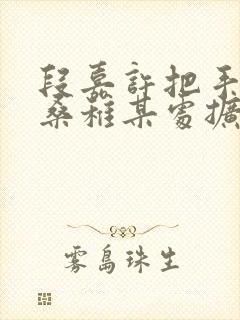 段嘉許把手
桑稚某處擴
雾島珠生